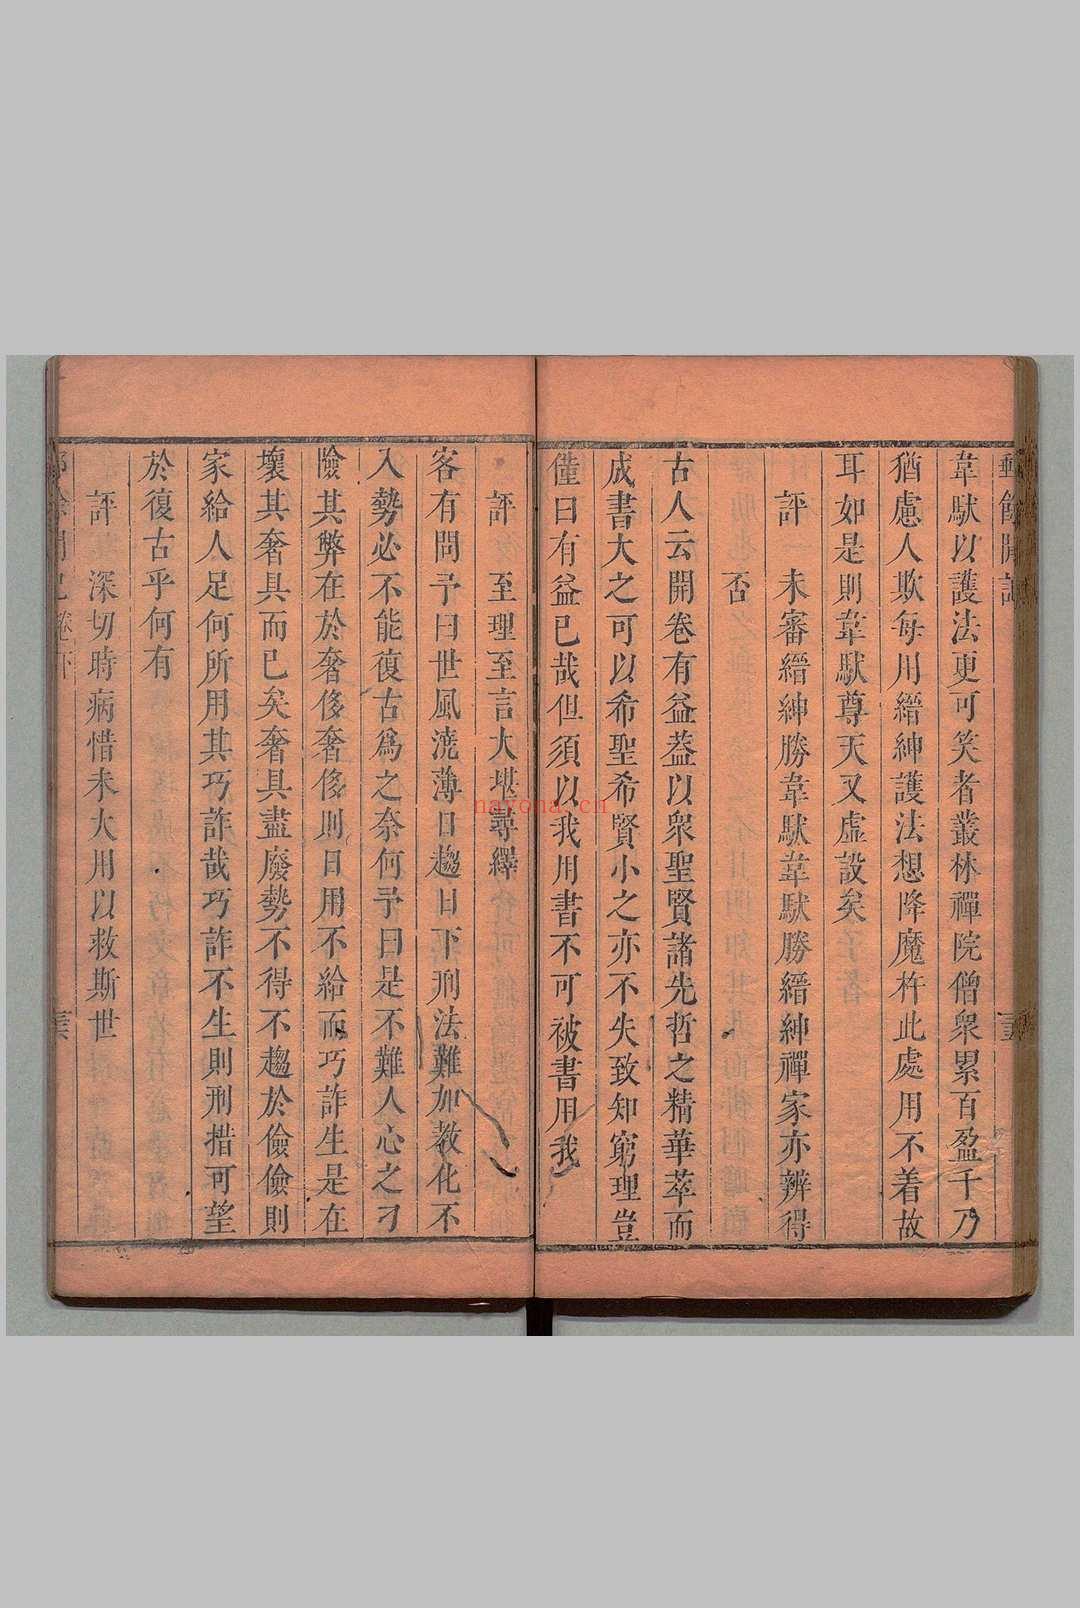 韋馱以護法更可笑者叢林禪院僧衆累百盈千乃
猶慮人欺每用縉紳護法想降魔杵此處用不着故
耳如是則韋馱尊天又虛設矣
評　未審縉紳勝韋馱韋馱勝縉紳禪家亦辨得
否
古人云開卷有益葢以衆聖賢諸先哲之精華萃而
成書大之可以希聖希賢小之亦不失致知窮理豈
僅曰有益已哉但須以我用書不可被書用我
評　至理至言大堪尋繹
客有問予曰世風澆薄日趨日下刑法難加教化不
入勢必不能復古爲之奈何予曰是不難人心之刁
險其弊在於奢侈奢侈則日用不給而巧詐生是在
壞其奢具而已矣奢具盡廢勢不得不趨於儉儉則
家給人足何所用其巧詐哉巧詐不生則刑措可望
於復古乎何有
評　深切時病惜未大用以救斯世
卷下
nayona.cn